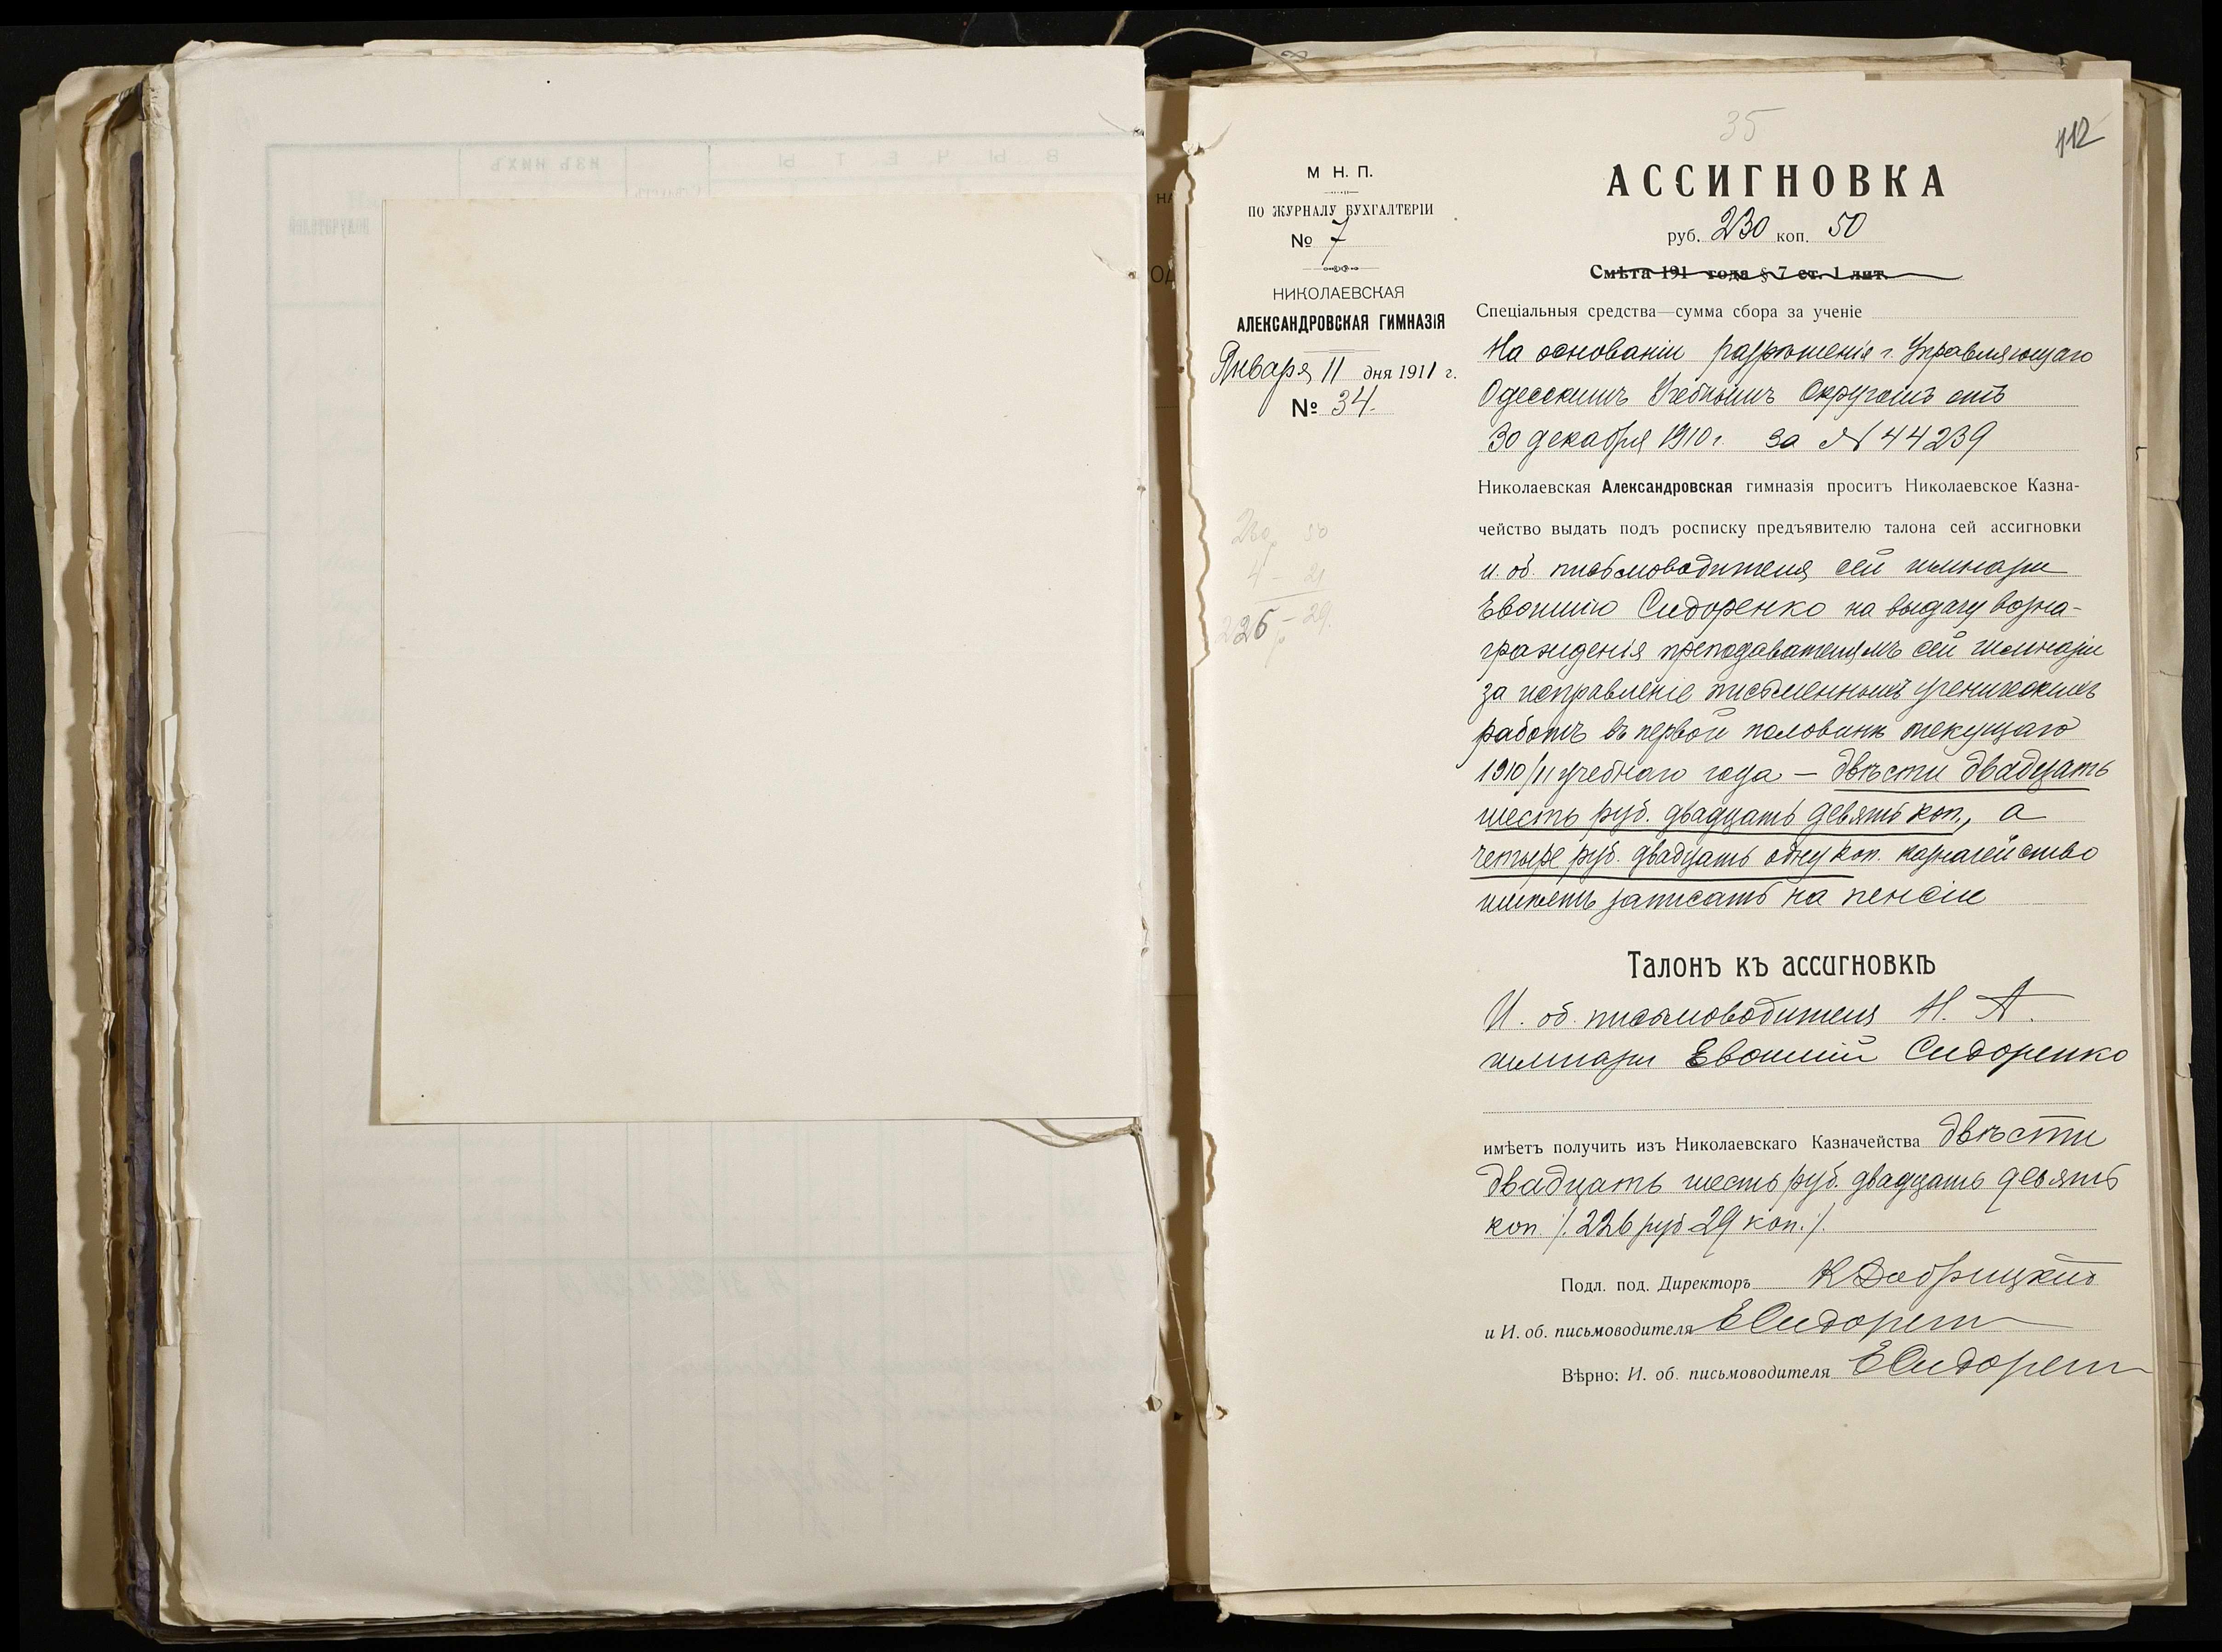 35
112
М Н. П.
ПО ЖУРНАЛУ БУХГАЛТЕРІИ
№ 7
НИКОЛАЕВСКАЯ
АЛЕКСАНДРОВСКАЯ ГИМНАЗІЯ
Января 11 дня 1911 г.
№ 34.
230 р 50
4 – 21
226 р – 29.
АССИГНОВКА
руб. 230 коп. 50
Смѣта 191 года § 7 ст. 1 лит.
Спеціальныя средства—сумма сбора за ученіе
На основаніи разрѣшенія г. Управляющаго
Одесскимъ Учебнымъ Округомъ отъ
30 декабря 1910 г. за № 44239
Николаевская Александровская гимназія проситъ Николаевское Казна-
чейство выдать подъ росписку предъявителю талона сей ассигновки
и. об. письмоводителя сей гимназіи
Евфимію Сидоренко на выдачу возна-
гражденія преподавателямъ сей гимназіи
за исправленіе письменныхъ ученическихъ
работъ въ первой половинѣ текущаго
1910/11 учебнаго года — двѣсти двадцать
шесть руб. двадцать девять коп., а
четыре руб. двадцать одну коп. казначейство
имѣетъ записать на пенсіи
Талонъ къ ассигновкѣ
И. об. письмоводителя Н. А.
гимназіи Евфимій Сидоренко
имѣетъ получить изъ Николаевскаго Казначейства двѣсти
двадцать шесть руб. двадцать девять
коп. /. 226 руб 29 коп. /.
Подл. под. Директоръ К
и И. об. письмоводителя Е Сидорен
Вѣрно: И. об. письмоводителя Е Сидорен